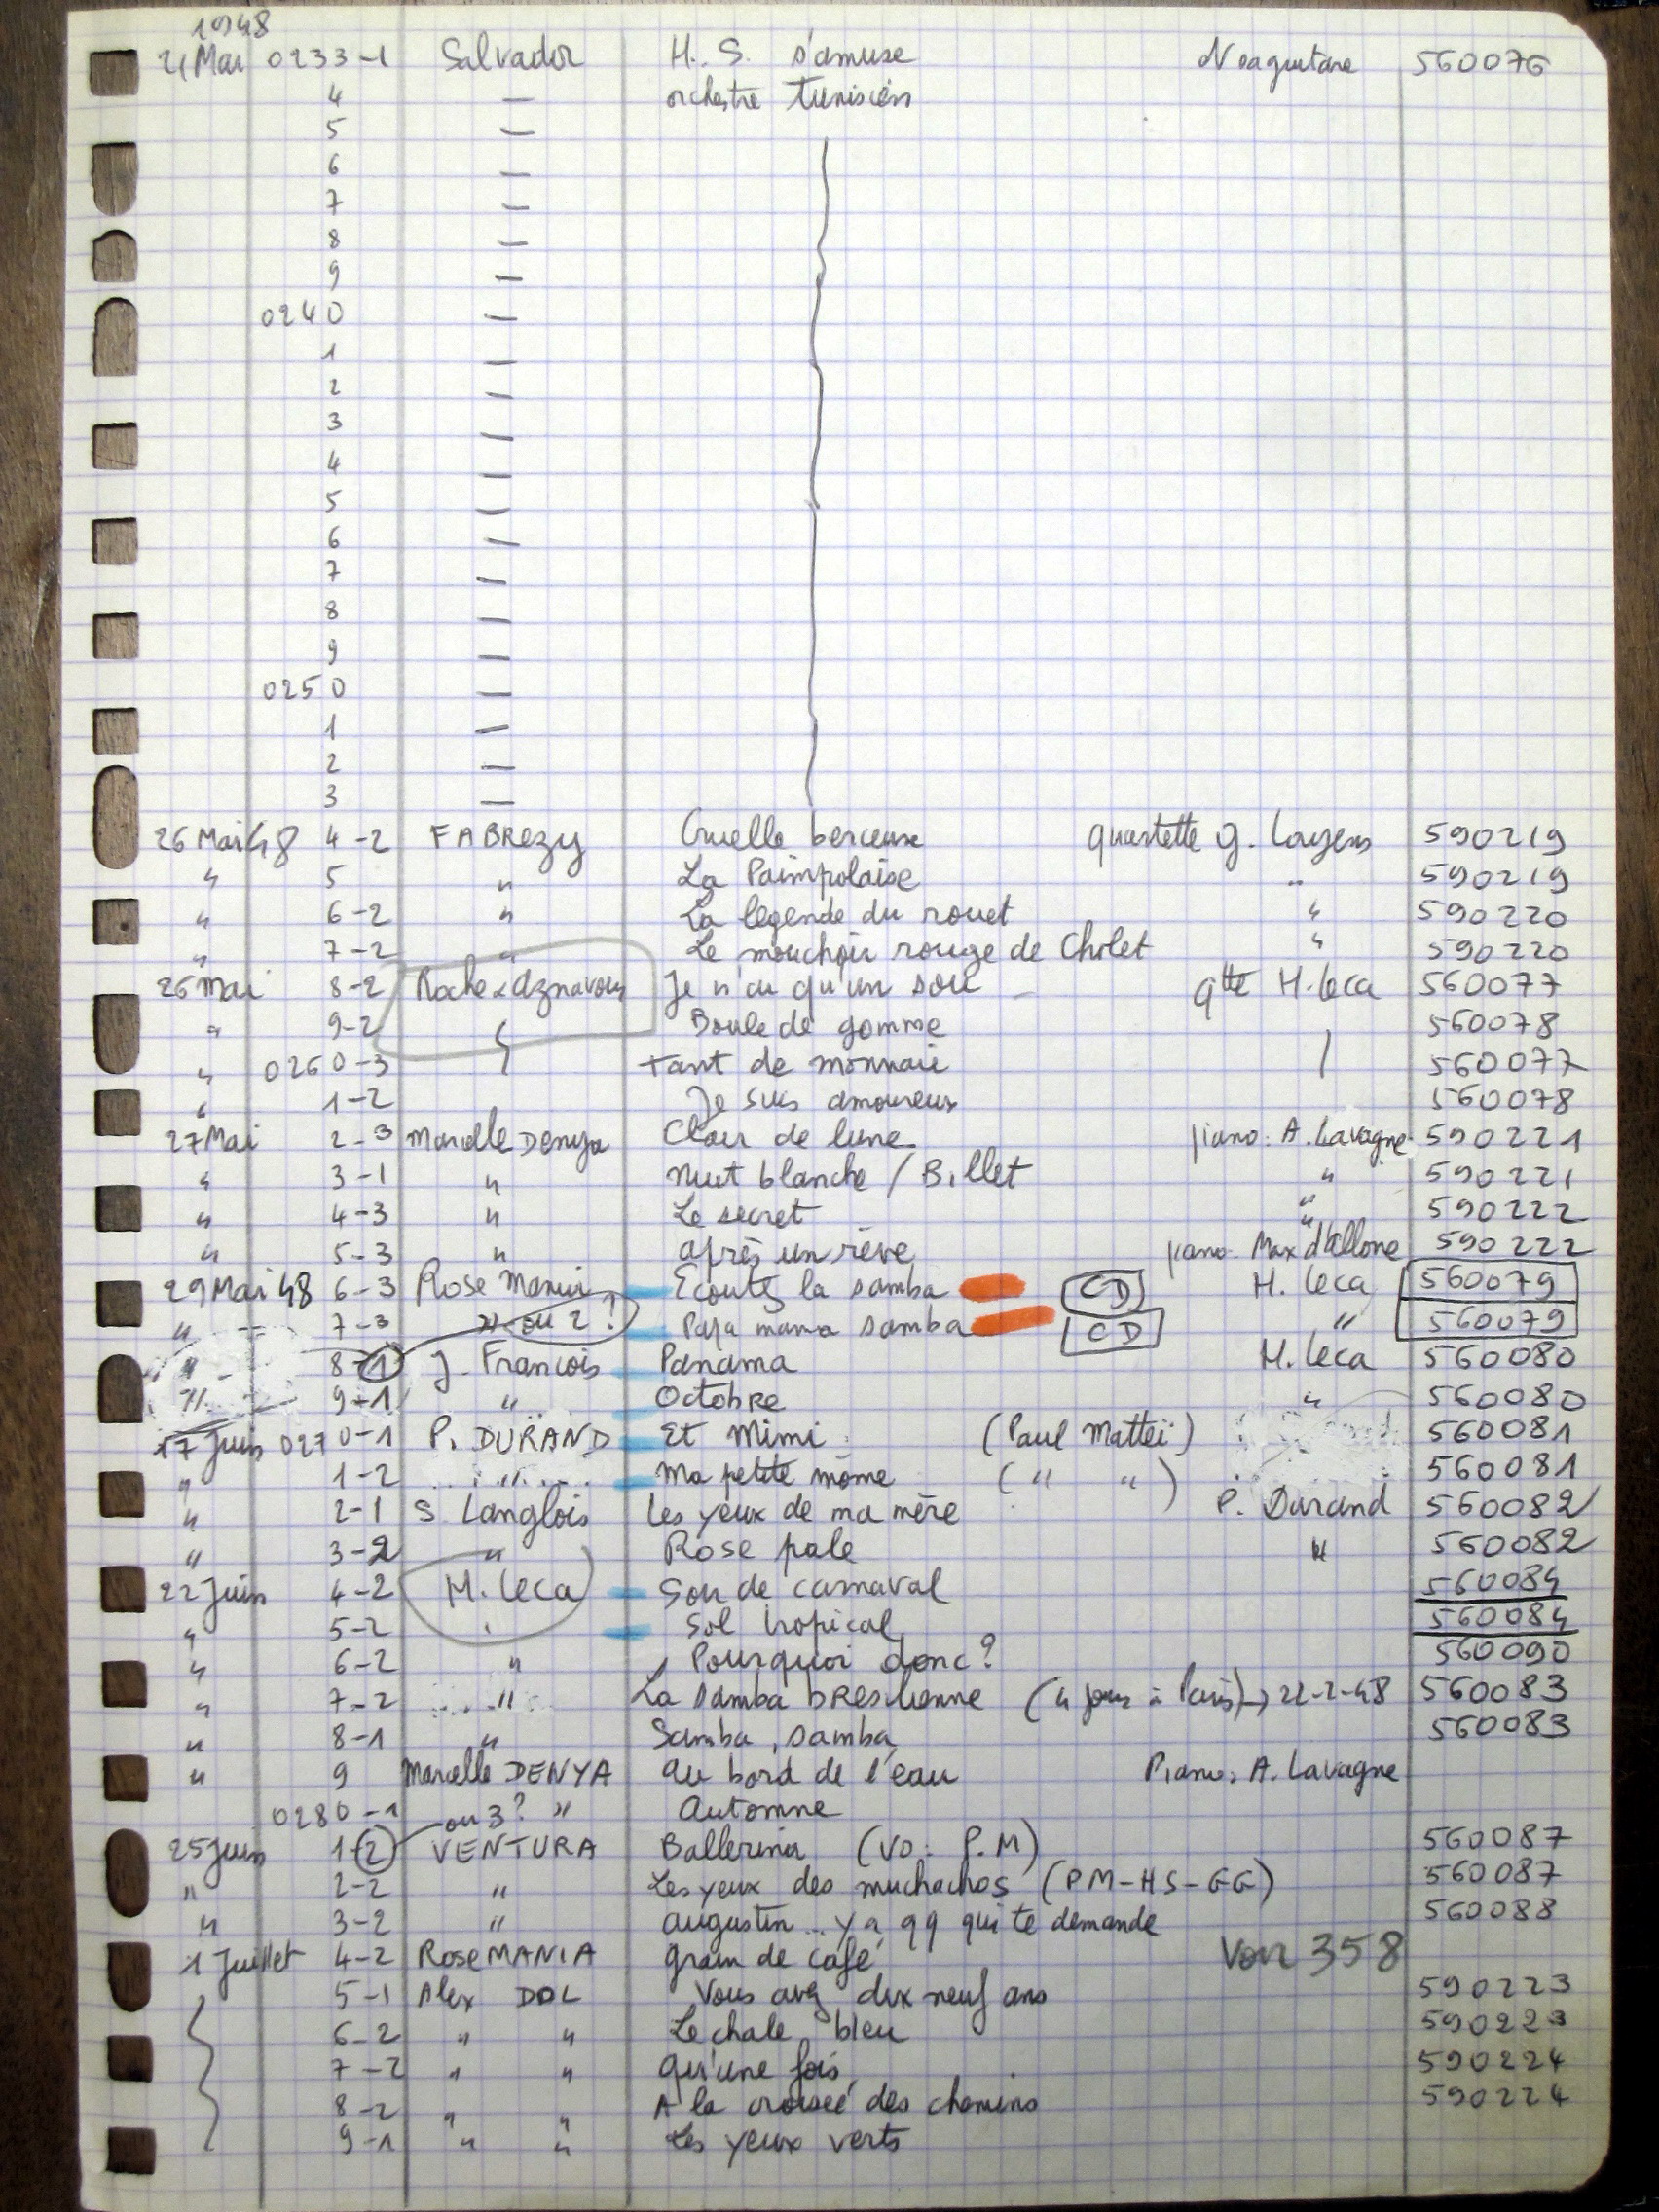 1948
21 Mai 0233-1 Salvador H. S. s'amuse 560076
4 — orchestre tunisien
5 —
6 —
7 —
8 —
9 —
0240 —
1 —
2 —
3 —
4 —
5 —
6 —
7 —
8 —
9 —
0250 —
1 —
2 —
3 —
26 Mai 48 4-2 FABREZY Cruelle berceuse quartette G. 590219
" 5 " La Paimpolaise " 590219
" 6-2 " La legende du rouet " 590220
" 7-2 " Le mouchoir rouge de Cholet " 590220
26 Mai 8-2 Roche & Aznavour Je n'ai qu'un sou qtte M. Leca 560077
" 9-2 Boule de gomme 560078
" 0260-3 tant de monnaie 560077
" 1-2 Je suis amoureux 560078
27 Mai 2-3 Marcelle Denya Clair de lune piano: A. Lavagne 590221
" 3-1 " Nuit blanche / Billet " 590221
" 4-3 " Le secret " 590222
" 5-3 " après un rêve piano Max d'Ollone 590222
29 Mai 48 6-3 Rose Mania Ecoutez la samba CD M. Leca 560079
" 7-3 " ou 2? Papa mama samba CD " 560079
" 8-1 J. François Panama M. Leca 560080
" 9-1 " Octobre " 560080
17 Juin 0270-1 P. DURAND Et Mimi (Paul Matteï) 560081
" 1-2 " Ma petite môme ( " " ) 560081
" 2-1 S Langlois Les yeux de ma mère P. Durand 560082
" 3-2 " Rose pale " 560082
22 Juin 4-2 M. Leca Soir de carnaval 560084
" 5-2 " Sol tropical 560084
" 6-2 " Pourquoi donc? 560090
" 7-2 " La samba bresilienne (4 jours à Paris) → 22-2-48 560083
" 8-1 " Samba, samba 560083
" 9 Marcelle DENYA Au bord de l'eau Piano: A. Lavagne
0280-1 ou 3? " Automne
25 Juin 1-2 VENTURA Ballerina (VO: P.M) 560087
" 2-2 " Les yeux des muchachos (PM-HS-GG) 560087
" 3-2 " Augustin... y a qq qui te demande 560088
1 Juillet 4-2 Rose MANIA Grain de café Voir 358
5-1 Alex DOL Vous avez dix neuf ans 590223
6-2 " " Le chale bleu 590223
7-2 " " Qu'une fois 590224
8-2 " " A la croisée des chemins 590224
9-1 " " Les yeux verts